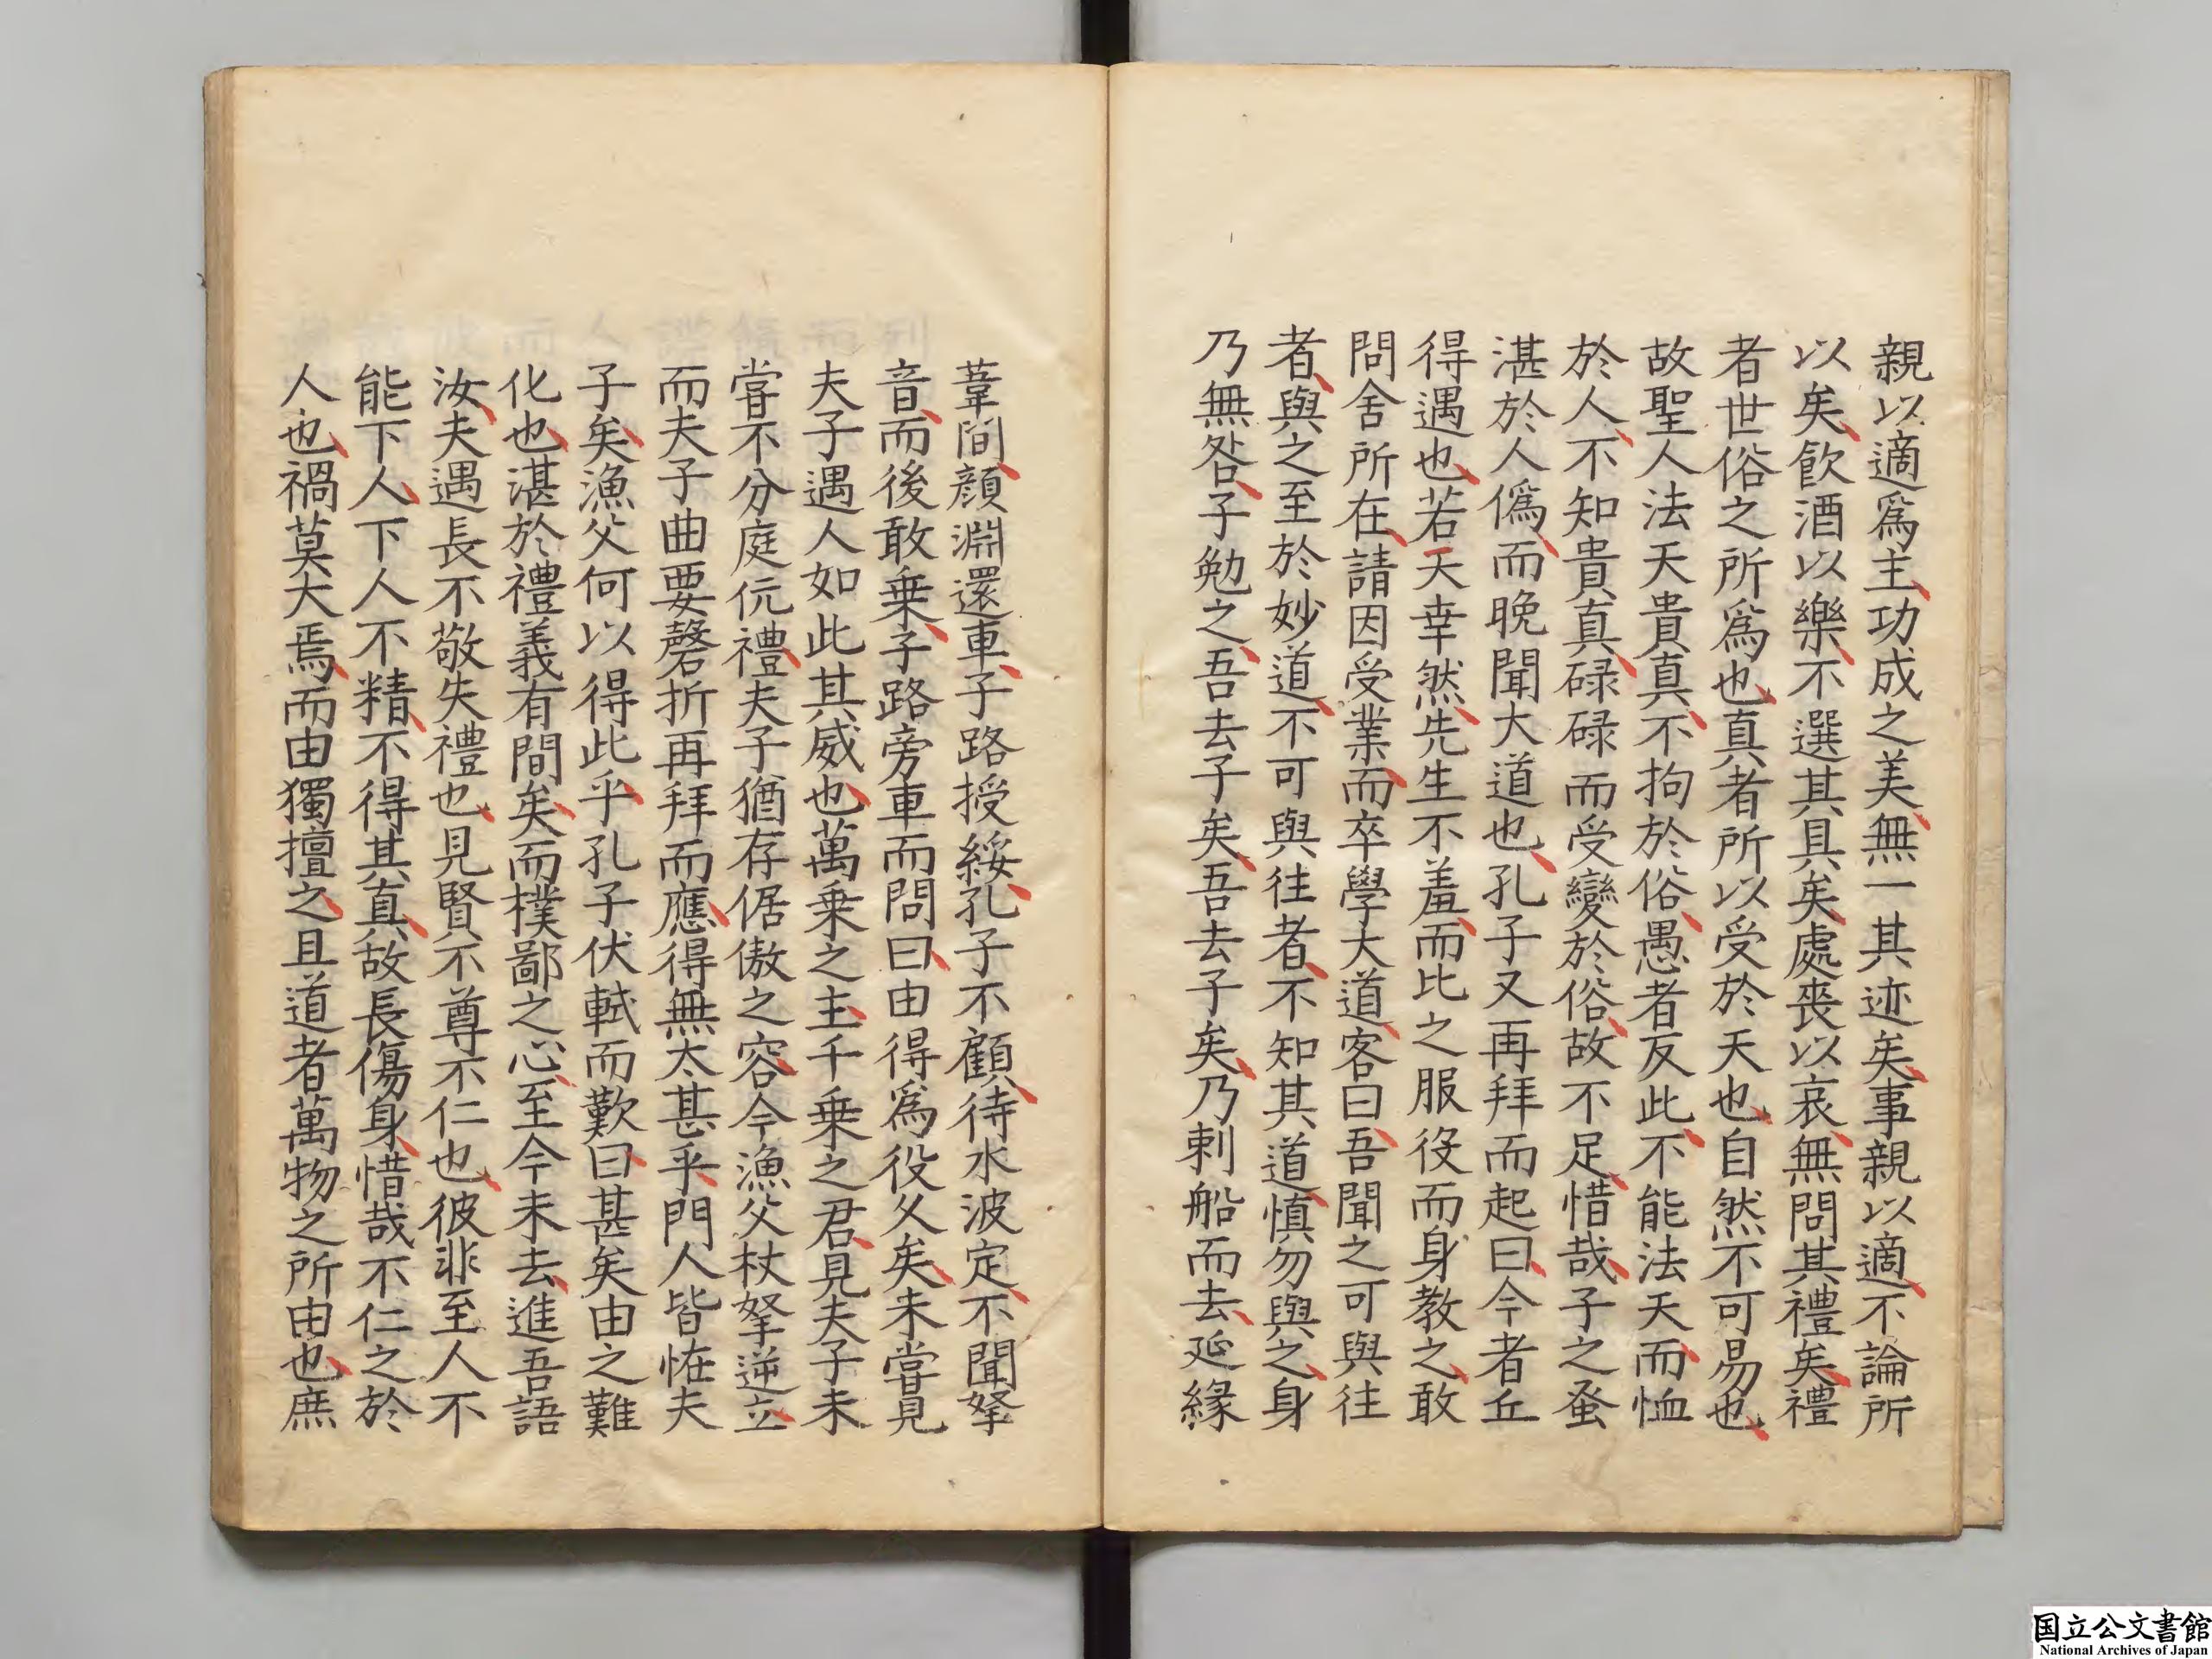 親以適爲主功成之美無一其迹矣事親以適不論所
以矣飲酒以樂不選其具矣處喪以哀無問其禮矣禮
者世俗之所爲也真者所以受於天也自然不可易也
故聖人法天貴真不拘於俗愚者反此不能法天而恤
於人不知貴真碌碌而受變於俗故不足惜哉子之蚤
湛於人僞而晚聞大道也孔子又再拜而起曰今者丘
得遇也若天幸然先生不羞而比之服役而身教之敢
問舍所在請因受業而卒學大道客曰吾聞之可與往
者與之至於妙道不可與往者不知其道慎勿與之身
乃無咎子勉之吾去子矣吾去子矣乃刺船而去延緣
葦間顔淵還車子路授綏孔子不顧待水波定不聞拏
音而後敢乗子路旁車而問曰由得爲役久矣未嘗見
夫子遇人如此其威也萬乗之主千乗之君見夫子未
嘗不分庭伉禮夫子猶存倨傲之容今漁父杖拏逆立
而夫子曲要磬折再拜而應得無太甚乎門人皆恠夫
子矣漁父何以得此乎孔子伏軾而歎曰甚矣由之難
化也湛於禮義有間矣而樸鄙之心至今未去進吾語
汝夫遇長不敬失禮也見賢不尊不仁也彼非至人不
能下人下人不精不得其真故長傷身惜哉不仁之於
人也禍莫大焉而由獨擅之且道者萬物之所由也庶
国立公文書館
National Archives of Japan